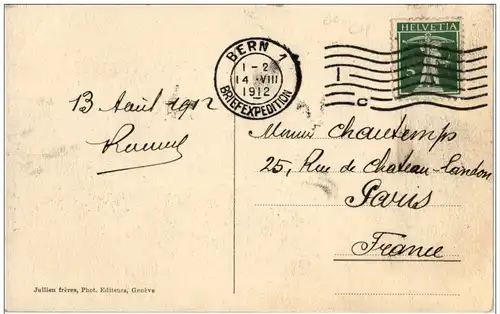 HELVETIA
BERN 1
1-2
14.VIII
1912
BRIEFEXPEDITION
13 Août 1912
Monsieur Chautemps
25, Rue de Chateau-Landon
Paris
France
Jullien frères, Phot. Editeurs, Genève